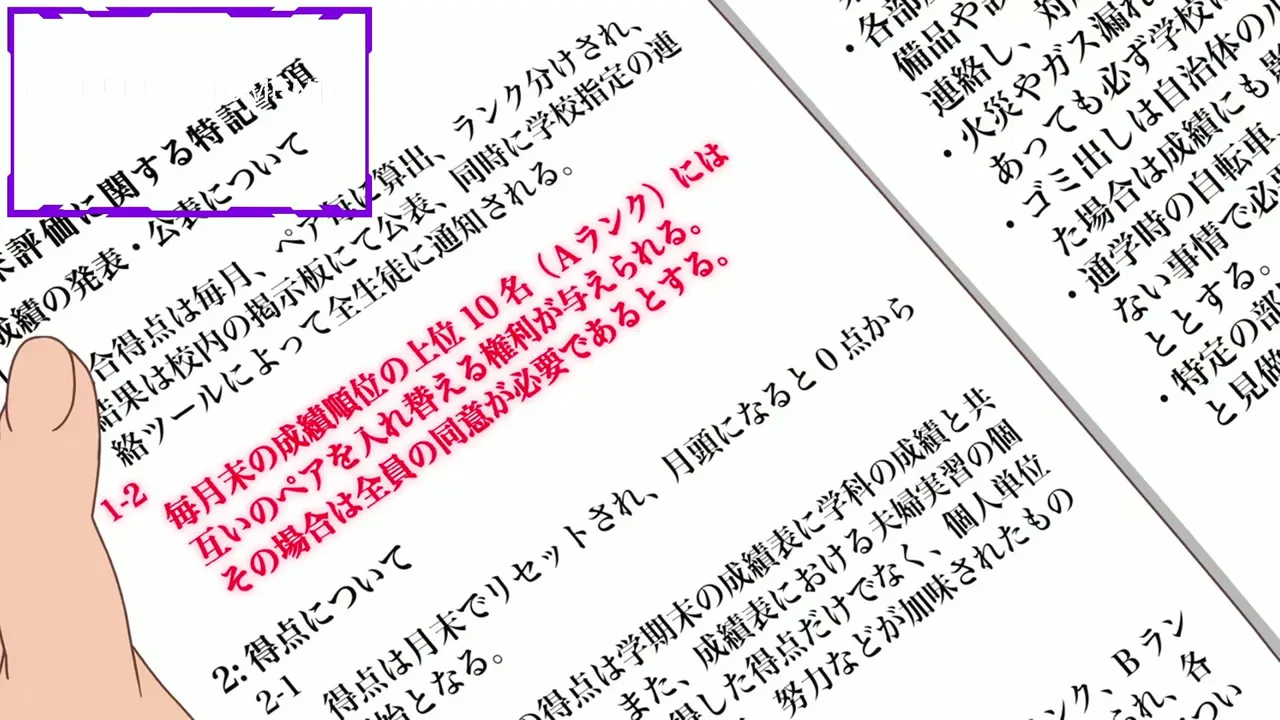 評価に関する特記事項
成績の発表・公表について
合得点は毎月、ペア毎に算出、ランク分けされ、
結果は校内の掲示板にて公表、同時に学校指定の連
絡ツールによって全生徒に通知される。
1-2 毎月末の成績順位の上位10名（Aランク）には
互いのペアを入れ替える権利が与えられる。
その場合は全員の同意が必要であるとする。
2: 得点について
2-1 得点は月末でリセットされ、月頭になると0点から
始となる。
の得点は学期末の成績表に学科の成績と共
また、成績表における夫婦実習の個
得した得点だけでなく、個人単位
努力などが加味されたもの
ンク、Bラン
られ、各
つい
・各部
備品や
連絡し、対
・火災やガス漏れ
あっても必ず学校
・ゴミ出しは自治体の
た場合は成績にも影
・通学時の自転車、
ない事情で必
ととする。
・特定の部
と見做